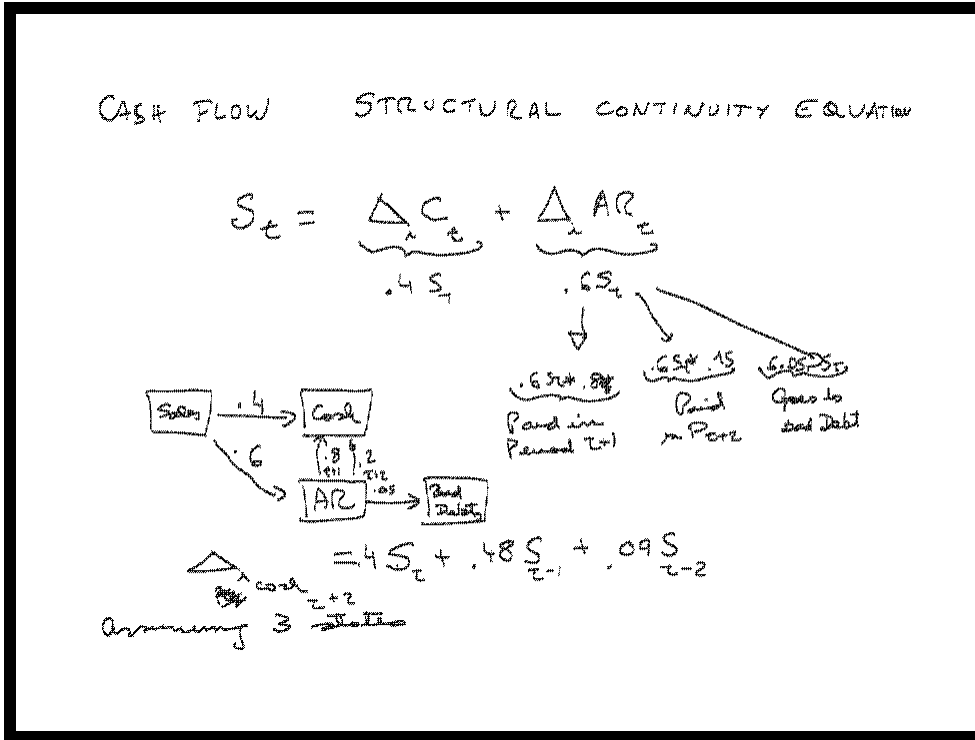 CASH FLOW STRUCTURAL CONTINUITY EQUATION
S_t = Δ_i C_t + Δ_i AR_t
.4 S_t .6 S_t
.6 S_t * .8 .6 S_t * .15 .6 .05 S_t
Paid in Period t+1
Paid in P_{t+2}
Goes to bad Debt
Sales .4 Cash
.6 .8 t+1 .2 t+2
AR .05 Bad Debts
Δ_i cash_{t+2} = .4 S_t + .48 S_{t-1} + .09 S_{t-2}
Assuming 3